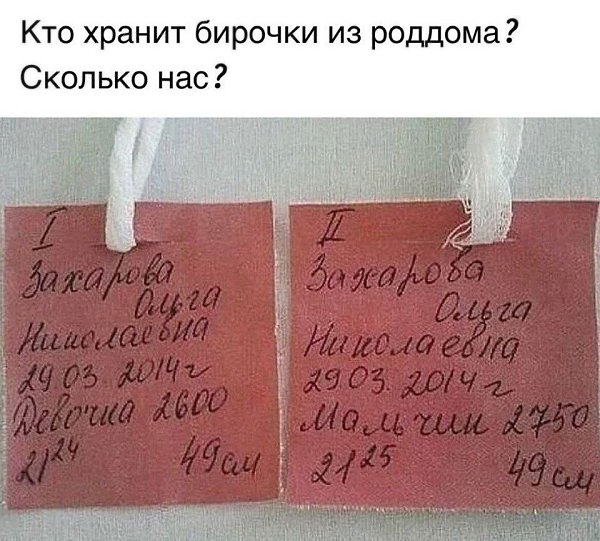 Кто хранит бирочки из роддома?
Сколько нас?
I
Захарова
Ольга
Николаевна
29 03. 2014 г
Девочка 2600
21 24 49 см
II
Захарова
Ольга
Николаевна
29 03. 2014 г
Мальчик 2750
21 25 49 см